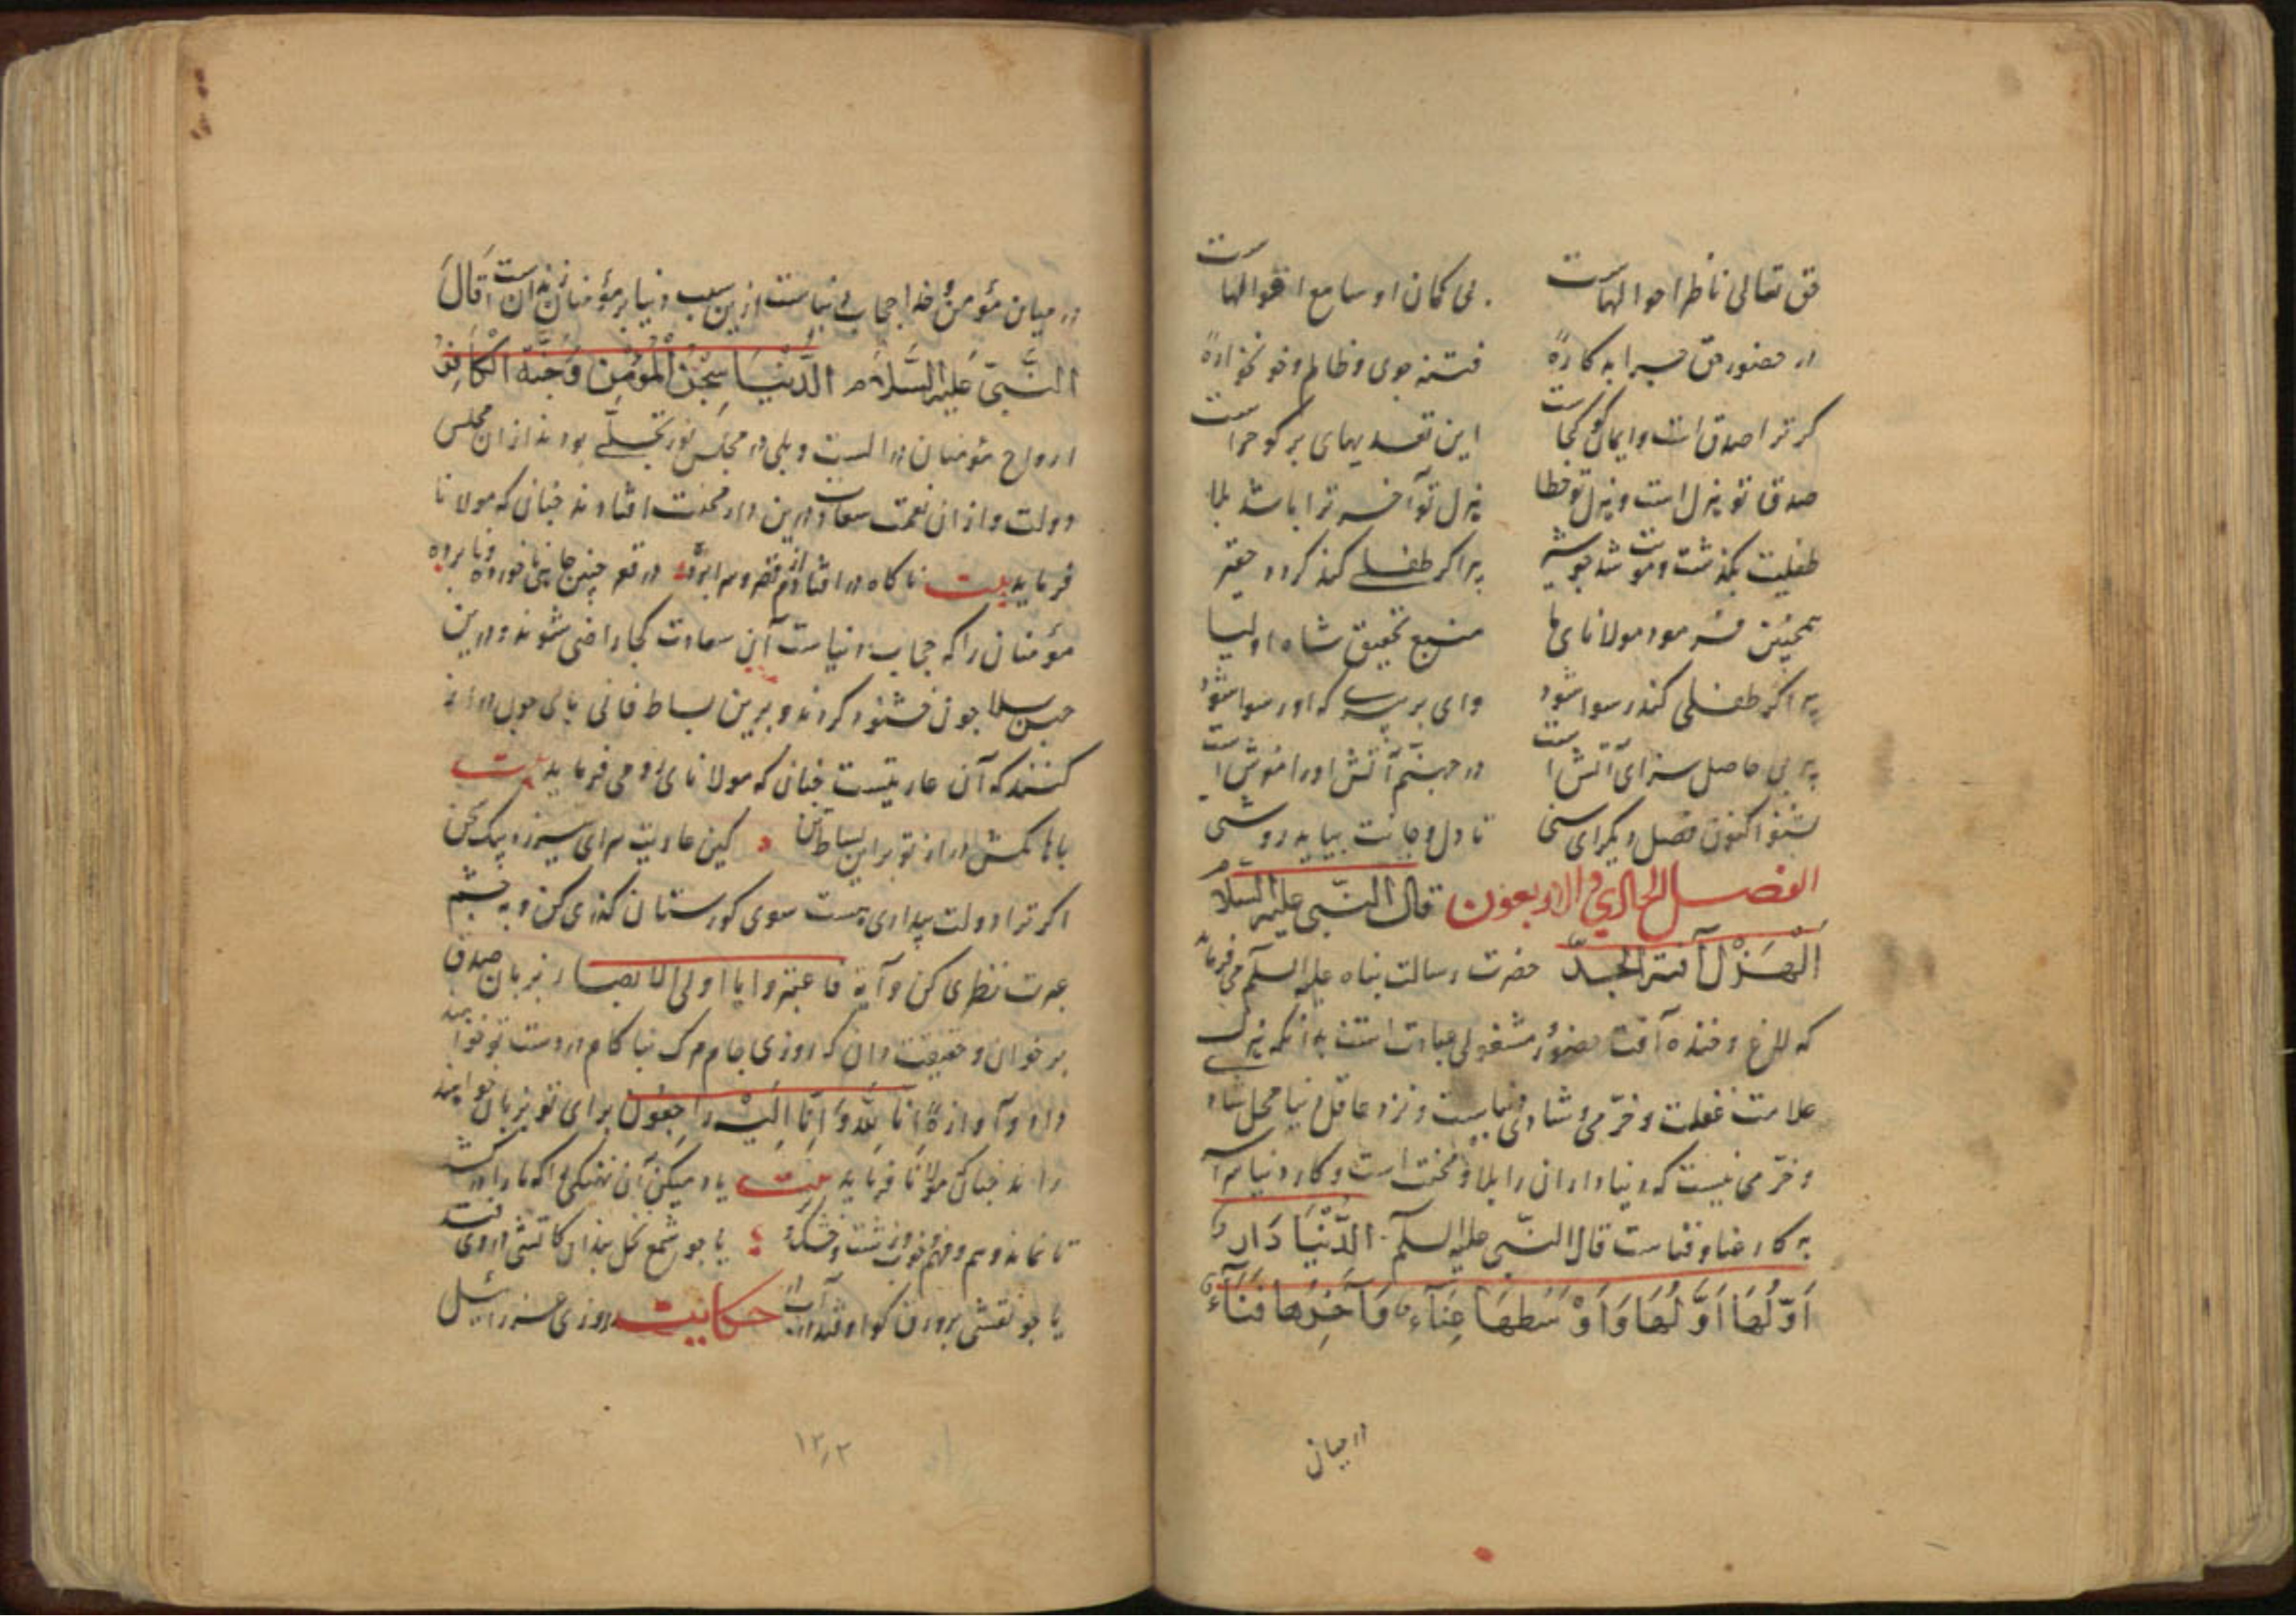 حق تعالی ناظر احوالهاست بی کمان او سامع اقوالهاست
در حضور حق چرا بد کارۀ فتنه جوی و ظالم و خونخوارۀ
کر ترا صدق است و ایمان کو کجاست این تعدیهای بر کو چراست
صدق تو هزل است و هزل تو خطا هزل تو آخر ترا باشد بلا
طفلیت بکذشت و موت شد جو شیر پیر اکر طفلی کند کردد حقیر
همچنین فرمود مولانای ما منبع تحقیق شاه اولیا
پیر اکر طفلی کند رسوا شود وای بر پیری که او رسوا شود
پیر بی حاصل سزای آتش است در جهنم آتش او را خوش است
بشنو اکنون فصل دیکر ای سخی تا دل و جانت بیابد روشنی
الفصل الحادی و الاربعون قال النبی علیه السلام
الهزل آفة الجد حضرت رسالت پناه علیه السلم می فرماید
که للاغ و خنده آفت حضور مشغولی عبادت است بدانکه هزل
علامت غفلت و خرّمی و شادی دنیاست و نزد عاقل دنیا محل شاد
و خرّمی نیست که دنیاداران را بلا و محنت است و کار دنیا سرا
به کار عنا و فناست قال النبی علیه السلم الدُّنْیَا دَار
اَوَّلُهَا اَوَّلُهَا وَ اَوْسَطُهَا عِنَآء وَ آخِرُهَا فَنَآء
در میان
در میان مؤمن و خدا حجاب دنیاست ازین سبب دنیا بر مؤمنان زندان است قَالَ
النَّبِیّ عَلَیه السَّلَام الدُّنْیَا سِجْنُ الْمُؤْمِنِ وَ جَنَّة الْکَافِر
ارواح مؤمنان در الست و بلی در مجلس نور تجلّی بودند ازان مجلس
دولت و ازان نعمت سعادت درین دار محنت افتادند چنان که مولانا
فرماید بیت ناکاه در افتادم در قعر چنین جاهی ناخورده و نابرده
مؤمنان را که حجاب دنیاست ازین سعادت کجا راضی شوند و درین
حبس بلا جون خشنود کردند و برین بساط فانی پای جون دراز
کنند که آن عاریتیست چنان که مولانای رومی فرماید بیت
پاها مکش دراز تو بر این بساط کین عاریت سرای نیرزد بیک
اکر ترا دولت بیداری هست سوی کورستان کذری کن و بچشم
عبرت نظری کن و آیة فاعتبروا یا اولی الابصار بزبان صدق
بر خوان و حقیقت دان که روزی جام مرک بناکام در دست تو خواهند
داد و آوازۀ اِنَّا لِلّٰهِ وَ اِنَّا اِلَیْهِ رَاجِعُون برای تو بزبان خواهند
راند چنان که مولانا فرماید بیت یاد میکن آن نهنکی را که ما را در کشد
تا نماند وهم و فهم و خوب و زشت و خشک یا جو شمع نخل بندان کاتشی در وی فتد
یا جو نقشی بر ورق کو اوفتد در آب حکایت روزی عزرائیل